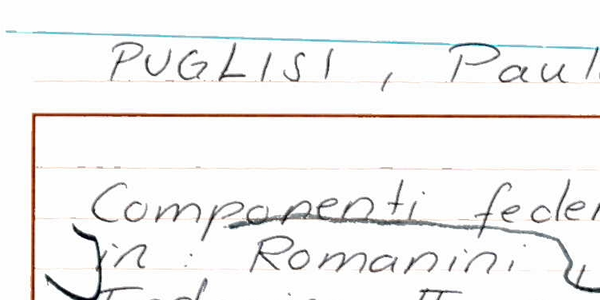 PUGLISI, Paul
Componenti feder
in: Romanini